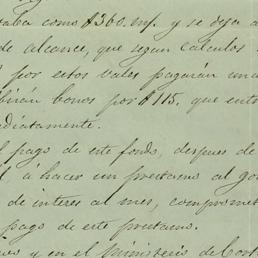 taba como $360. mp. y se deja a
de alcance, que segun calculos
por estos vales pagarán un
birán bonos por $115. que ent
adiatamente.
l pago de este fondo, despues de
á hacer un prestamo al go
de interes al mes, compromet
pago de este prestamo.
y en el ministerio de